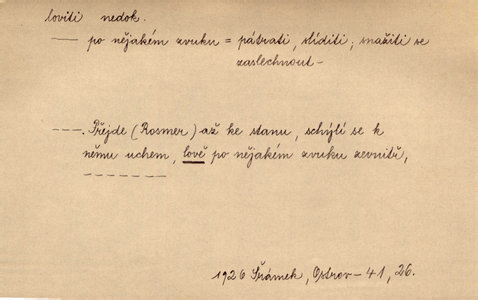 loviti nedok.
— po nějakém zvuku = pátrati, slíditi; snažiti se
zaslechnout –
– – –. Přejde (Rosmer) až ke stanu, schýlí se k
němu uchem, lově po nějakém zvuku zevnitř,
– – – – – – –
1926 Šrámek, Ostrov – 41, 26.